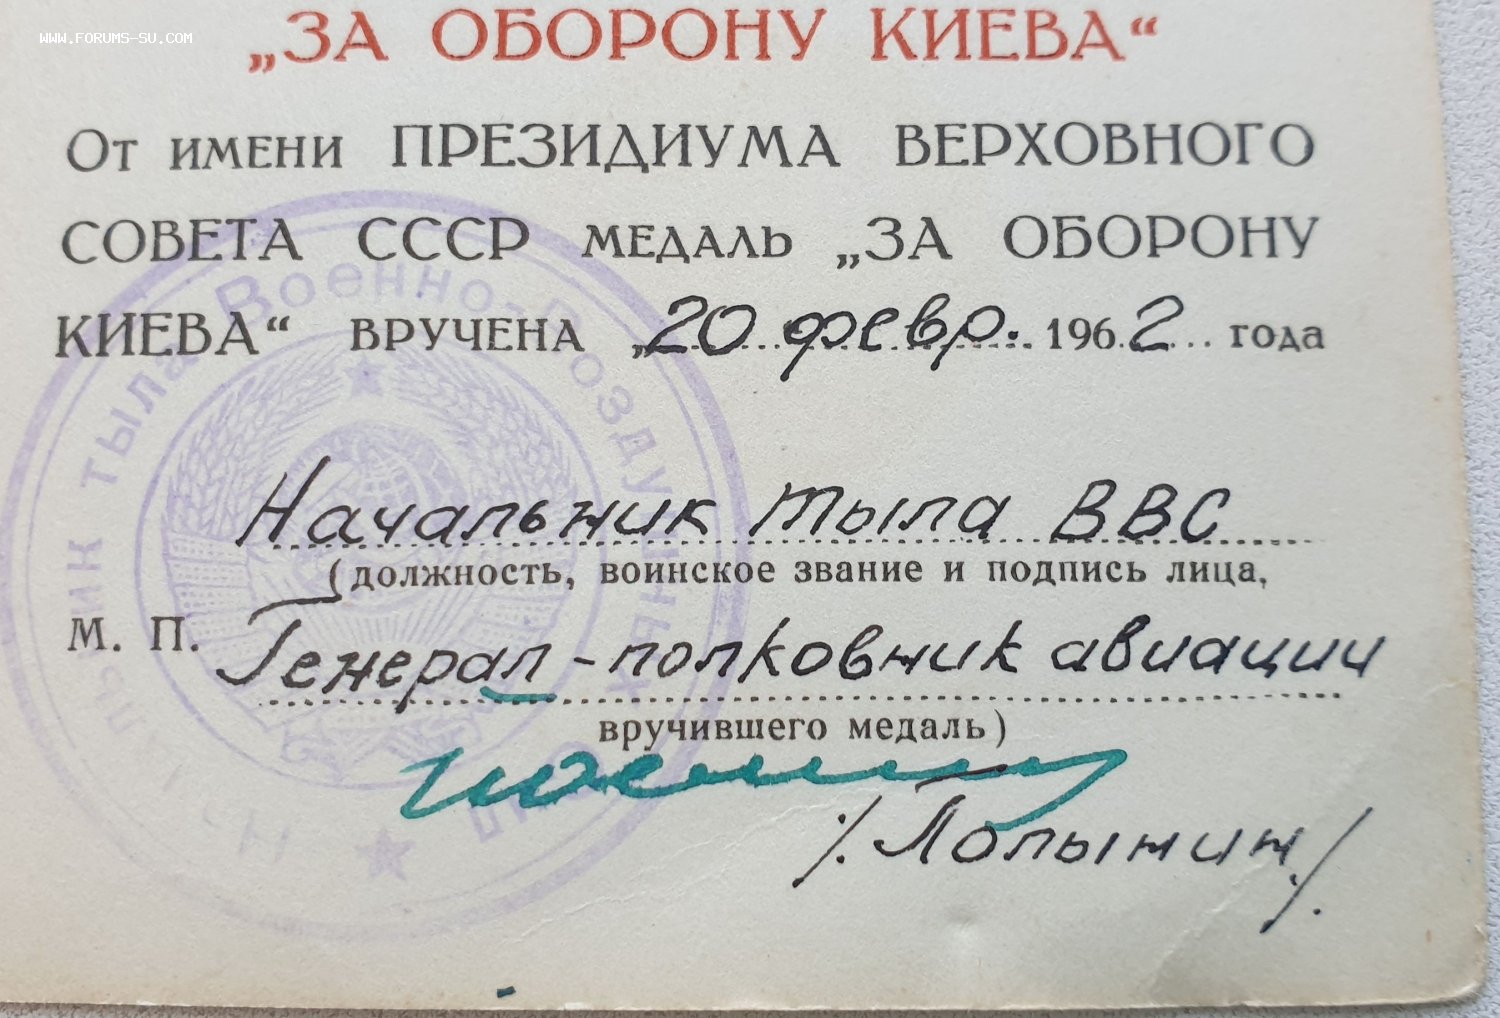 www.forums-su.com
„ЗА ОБОРОНУ КИЕВА“
От имени ПРЕЗИДИУМА ВЕРХОВНОГО
СОВЕТА СССР медаль „ЗА ОБОРОНУ
КИЕВА“ вручена „20 февр. 1962 года
Начальник тыла ВВС
(должность, воинское звание и подпись лица,
М. П. Генерал-полковник авиации
вручившего медаль)
/. Лопынин./.
тыла Военно-Возду